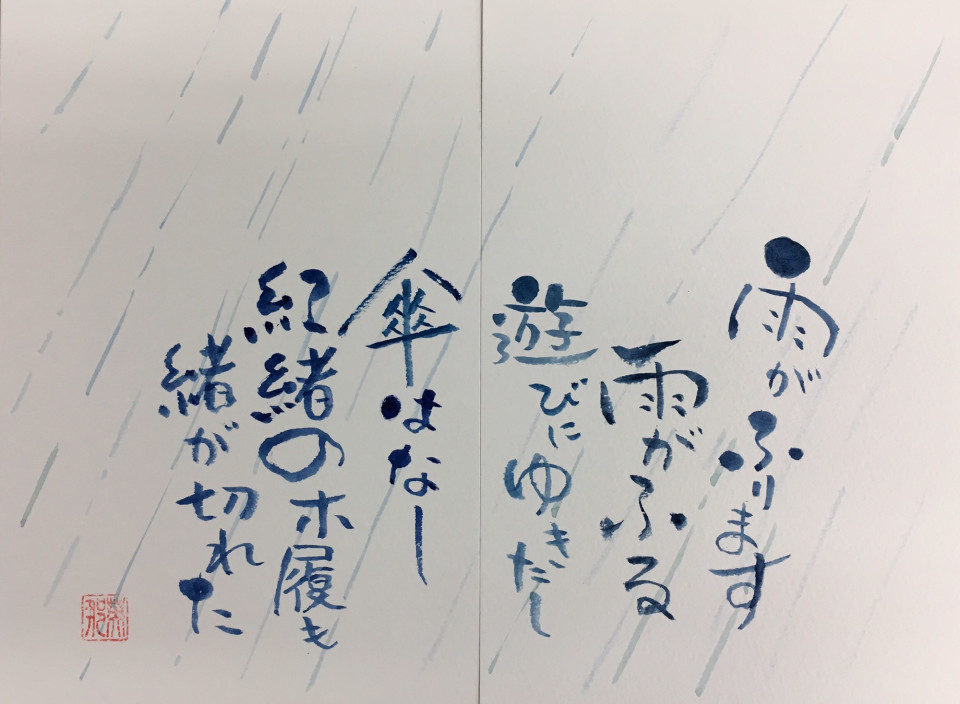 雨がふります
雨がふる
遊びにゆきたし
傘はなし
紅緒の木履も
緒が切れた